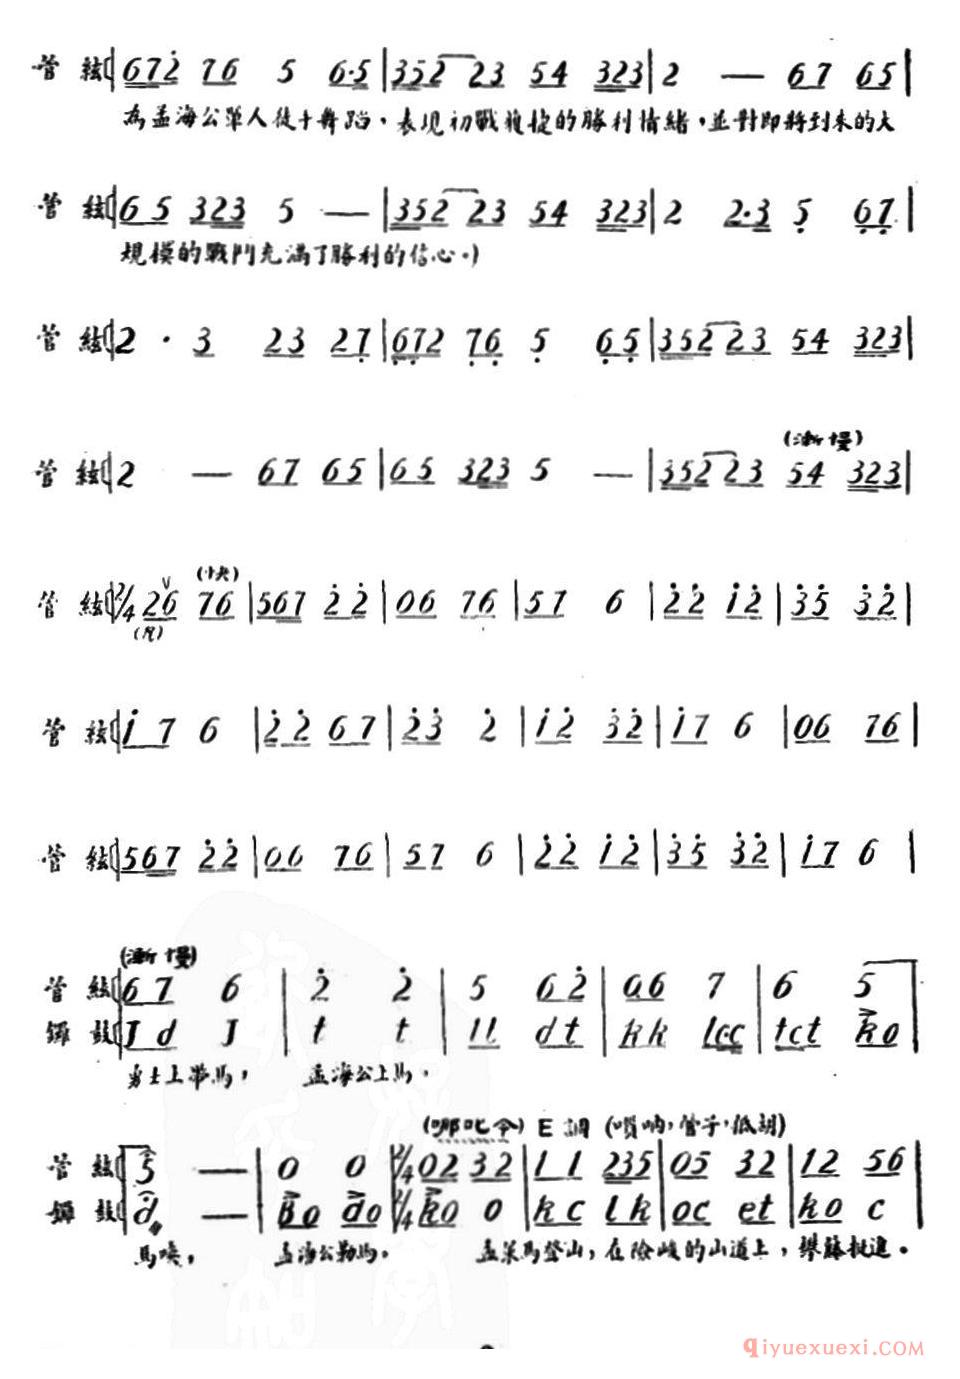 管 絃 672̇ 76 5 6·5 | 352 23 54 323 | 2 — 67 65 |
為孟海公單人徒手舞蹈，表現初戰獲捷的勝利情緒，並對即將到來的大
管 絃 65 323 5 — | 352 23 54 323 | 2 2·3 5̣ 6̣7̣ |
規模的戰鬥充滿了勝利的信心。)
管 絃 2 · 3 23 27̣ | 6̣7̣2 7̣6̣ 5̣ 6̣5̣ | 352 23 54 323 |
管 絃 2 — 67 65 | 65 323 5 — | 352 23 54 323 |
(漸慢)
管 絃 2/4 26 76 | 567 2̇2̇ | 06 76 | 57 6 | 2̇2̇ 1̇2̇ | 3̇5̇ 3̇2̇ |
管 絃 1̇7 6 | 2̇2̇ 67 | 2̇3̇ 2̇ | 1̇2̇ 3̇2̇ | 1̇7 6 | 06 76 |
管 絃 567 2̇2̇ | 06 76 | 57 6 | 2̇2̇ 1̇2̇ | 3̇5̇ 3̇2̇ | 1̇7 6 |
(漸慢)
管 絃 67 6 | 2̇ 2̇ | 5 62̇ | 06 7 | 6 5 |
鑼 鼓 Jd J | t t | ll dt | kk lcc | tct ko |
勇士上帶馬， 孟海公上馬，
(哪叱令) E調 (嗩吶，管子，低胡)
管 絃 5 — | 0 0 | 2/4 02 32 | 11 235 | 05 32 | 12 56 |
鑼 鼓 d — | Bo do | 2/4 ko 0 | kc lk | oc et | ko c |
馬嘶， 孟海公勒馬。 孟策馬登山，在險峻的山道上，攀藤挺進。
Qiyuexuexi.COM